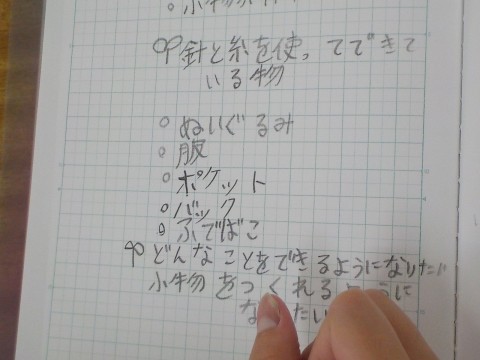 。小物
針と糸を使ってできて
いる物
。ぬいぐるみ
。服
。ポケット
。バック
。ふでばこ
どんなことをできるようになりたい
小物をつくれるように
なりたい